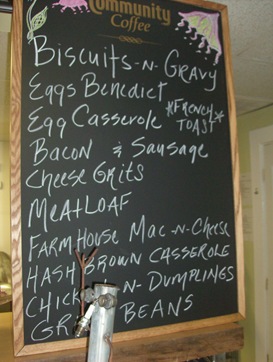 Community
Coffee
Biscuits-N-Gravy
Eggs Benedict
Egg Casserole *French Toast*
Bacon & Sausage
Cheese Grits
Meatloaf
Farm House Mac-N-Cheese
Hash Brown Casserole
N-Dumplings
Beans